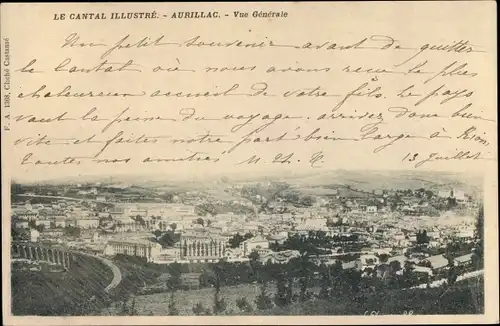 LE CANTAL ILLUSTRÉ. - AURILLAC. - Vue Générale
Un petit souvenir avant de quitter
le Cantal où nous avons reçu le plus
chaleureux accueil de votre fils. Le pays
vaut la peine du voyage. arrivez donc bien
vite et faites notre part bien large à
Toutes nos amitiés
13 juillet
F. A. 1398, Cliché Castamé